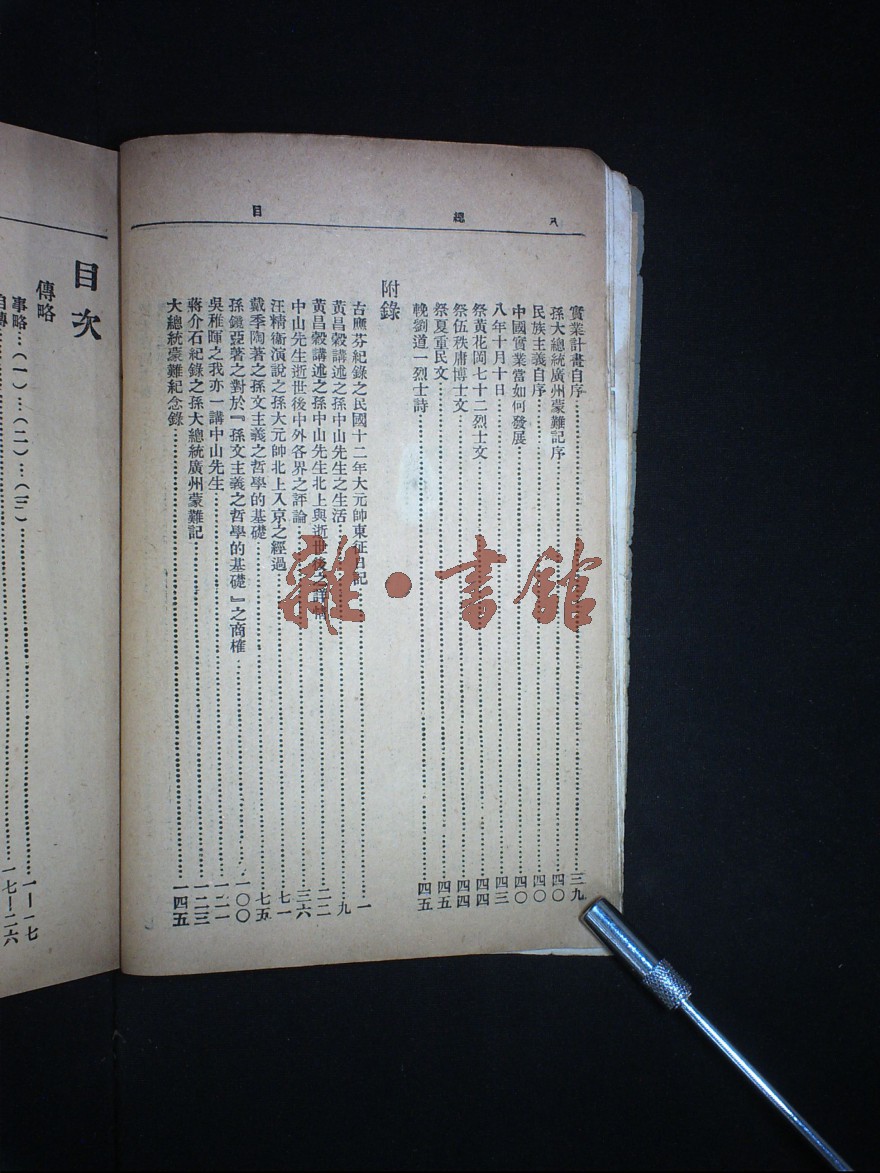 八　總　目
實業計畫自序……三九
孫大總統廣州蒙難記序……四〇
民族主義自序……四〇
中國實業當如何發展……四〇
八年十月十日……四三
祭黃花岡七十二烈士文……四四
祭伍秩庸博士文……四四
祭夏重民文……四五
輓劉道一烈士詩……四五
附錄
古應芬紀錄之民國十二年大元帥東征日記……一
黃昌穀講述之孫中山先生之生活……九
黃昌穀講述之孫中山先生北上與逝世後之詳情……二二
中山先生逝世後中外各界之評論……三六
汪精衛演說之孫大元帥北上入京之經過……七一
戴季陶著之孫文主義之哲學的基礎……七五
孫鏡亞著之對於『孫文主義之哲學的基礎』之商榷……一〇〇
吳稚暉之我亦一講中山先生……一二一
蔣介石紀錄之孫大總統廣州蒙難記……一二三
大總統蒙難紀念錄……一四五
目次
傳略
事略…(一)…(二)…(三)……一—一七
自傳……一七—二六
雜·書館